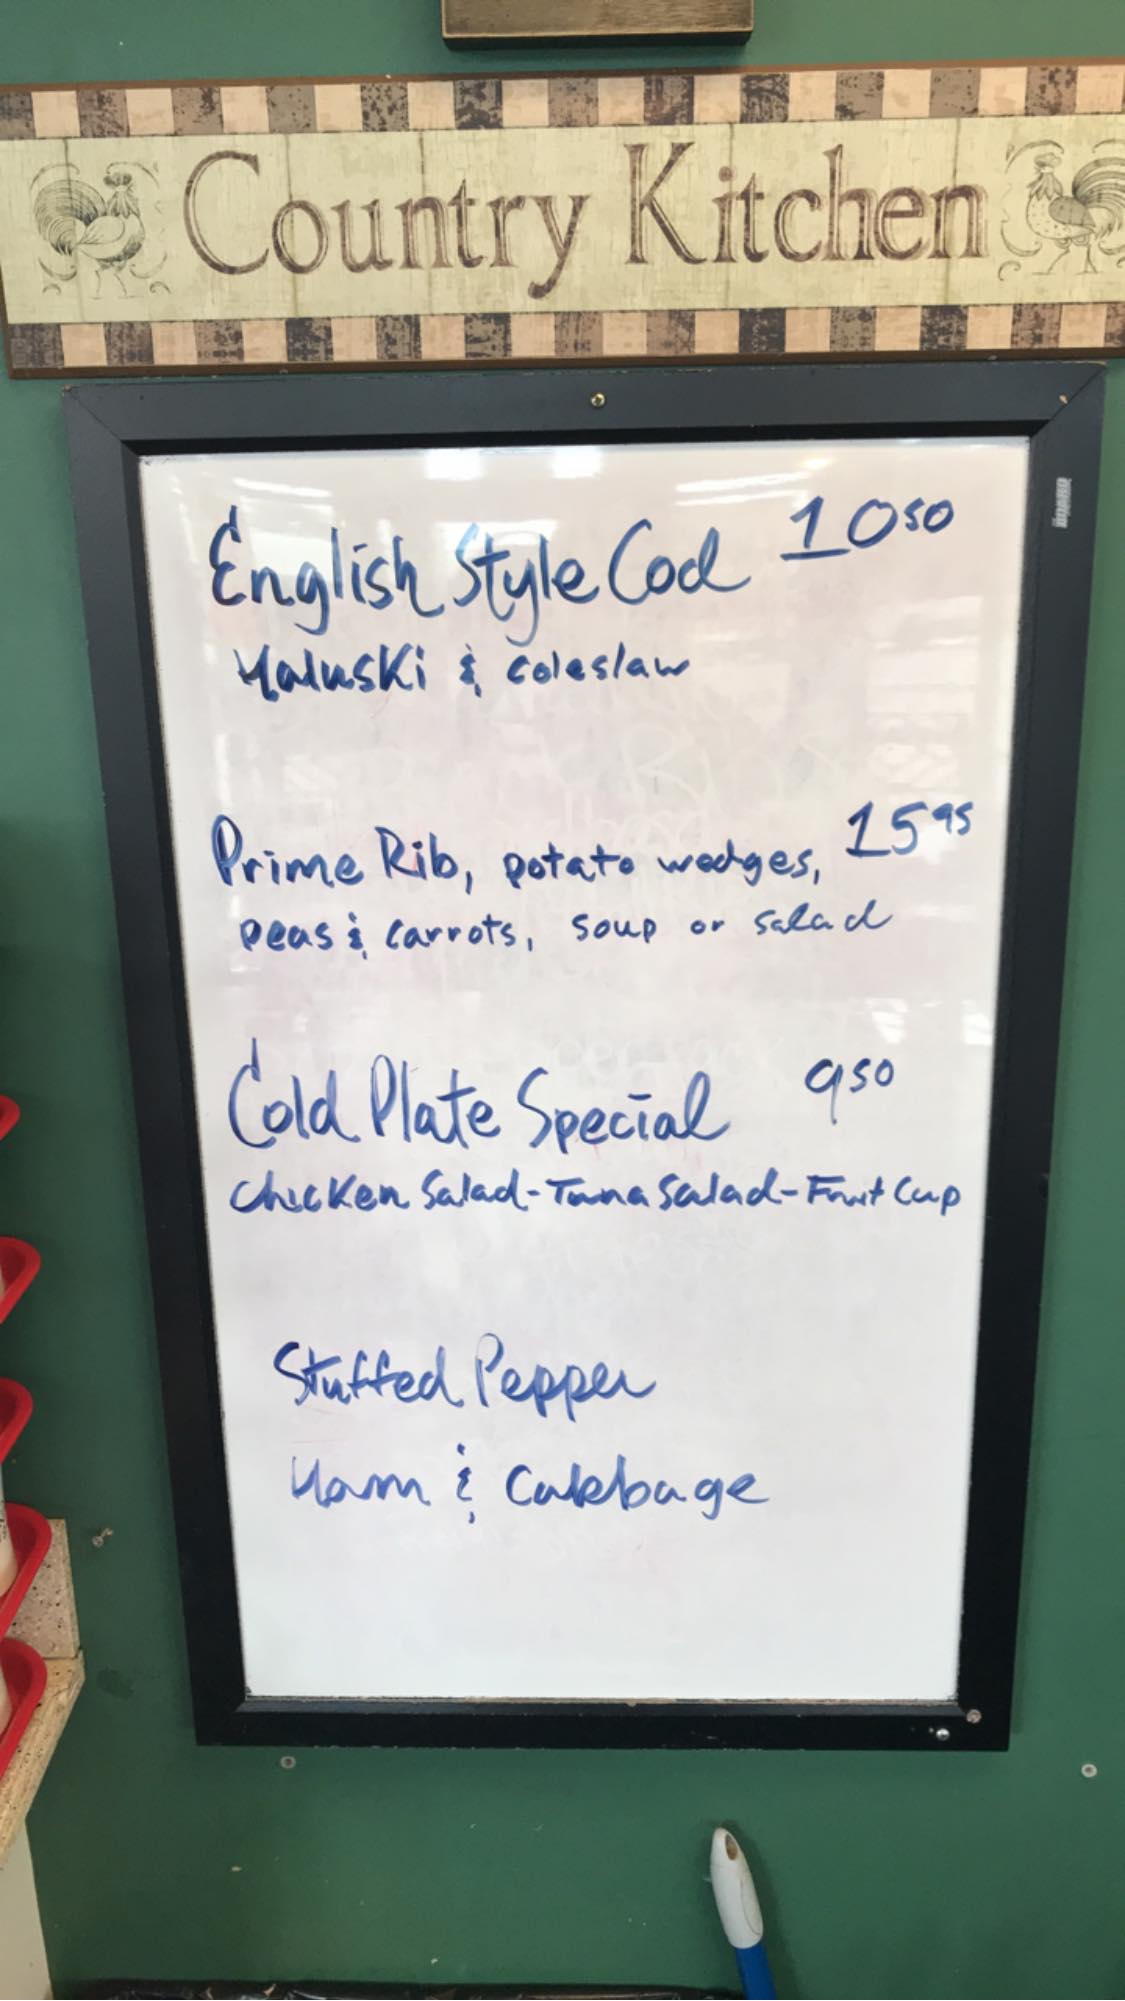 Country Kitchen
English Style Cod 10 50
Haluski & coleslaw
Prime Rib, potato wedges, 15 95
peas & carrots, soup or salad
Cold Plate Special 9 50
Chicken Salad - Tuna Salad - Fruit Cup
Stuffed Pepper
Ham & Cabbage